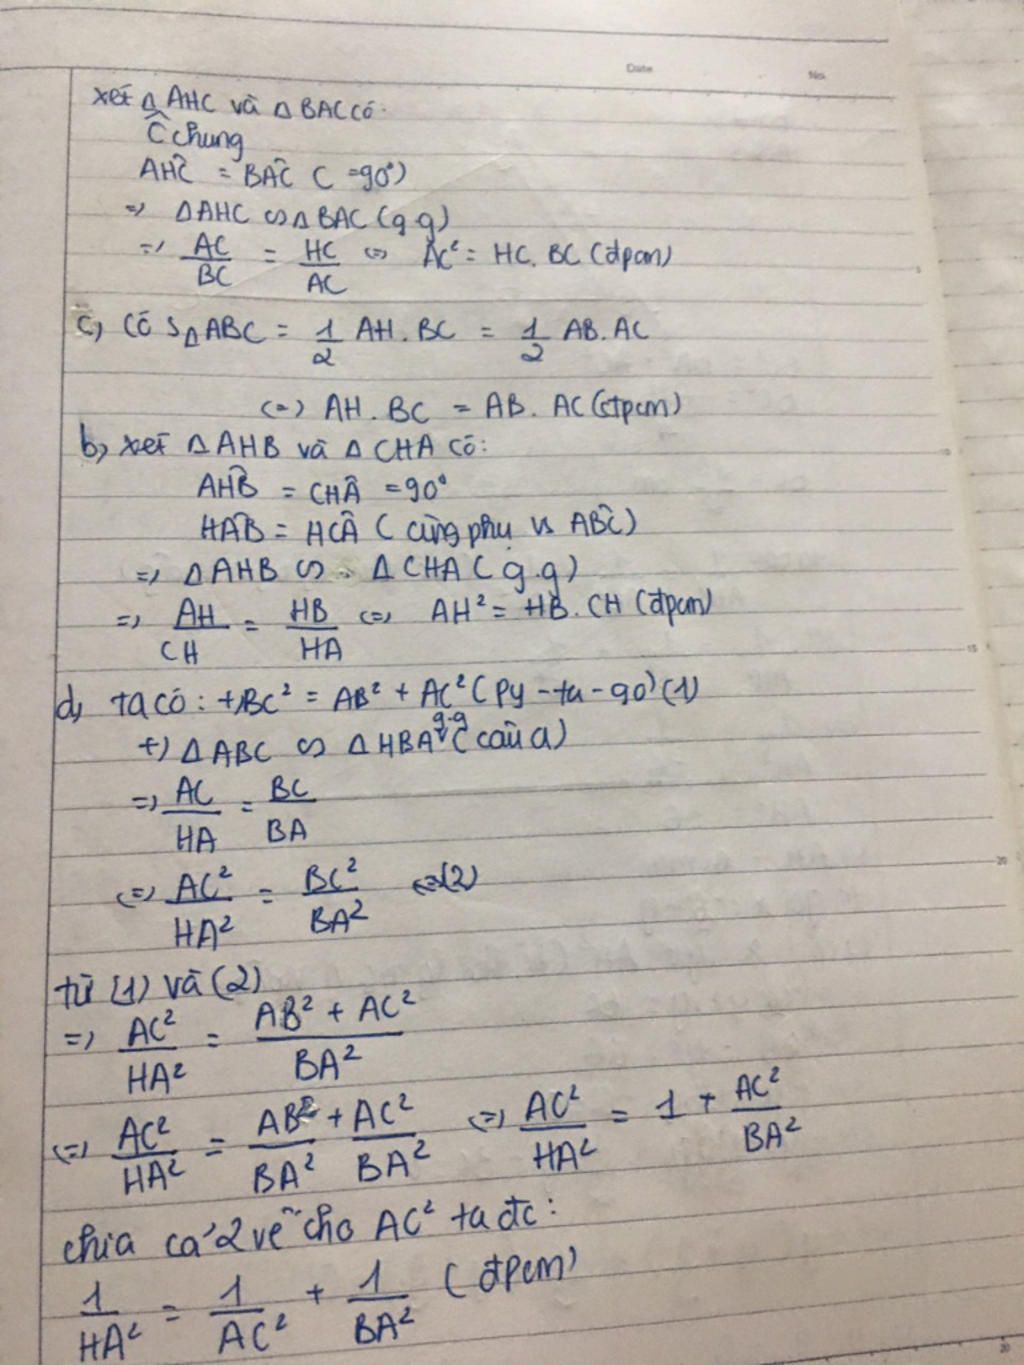 Date No.
xét △ AHC và △ BAC có:
Ĉ chung
AHĈ = BAĈ ( =90°)
=> △AHC ∽ △ BAC (g g)
=> AC/BC = HC/AC <=> AC² = HC. BC (đpcm)
5
c, Có S△ABC = 1/2 AH . BC = 1/2 AB. AC
(=) AH . BC = AB. AC (đpcm)
b, xét △ AHB và △ CHA có:
10
AHB̂ = CHÂ = 90°
HAB̂ = HCÂ ( cùng phụ vs ABĈ)
=> △ AHB ∽ △ CHA ( g.g)
=> AH/CH = HB/HA <=> AH² = HB. CH (đpcm)
15
d, ta có : +, BC² = AB² + AC² ( Py - ta - go) (1)
+) △ ABC ∽ △ HBA g.g ( câu a)
=> AC/HA = BC/BA
20
(=) AC²/HA² = BC²/BA² (2)
từ (1) và (2)
=> AC²/HA² = AB² + AC²/BA²
(=) AC²/HA² = AB²/BA² + AC²/BA² (=) AC²/HA² = 1 + AC²/BA²
chia cả 2 vế cho AC² ta đc :
1/HA² = 1/AC² + 1/BA² ( đpcm)